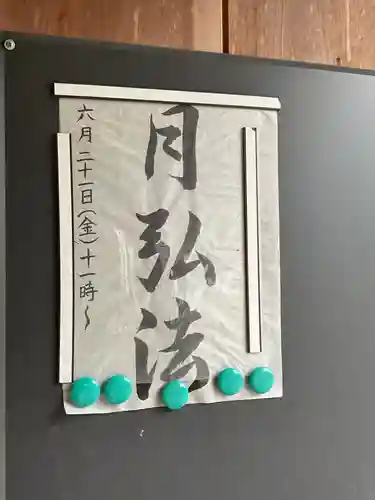 月弘法
六月二十一日(金)十一時〜